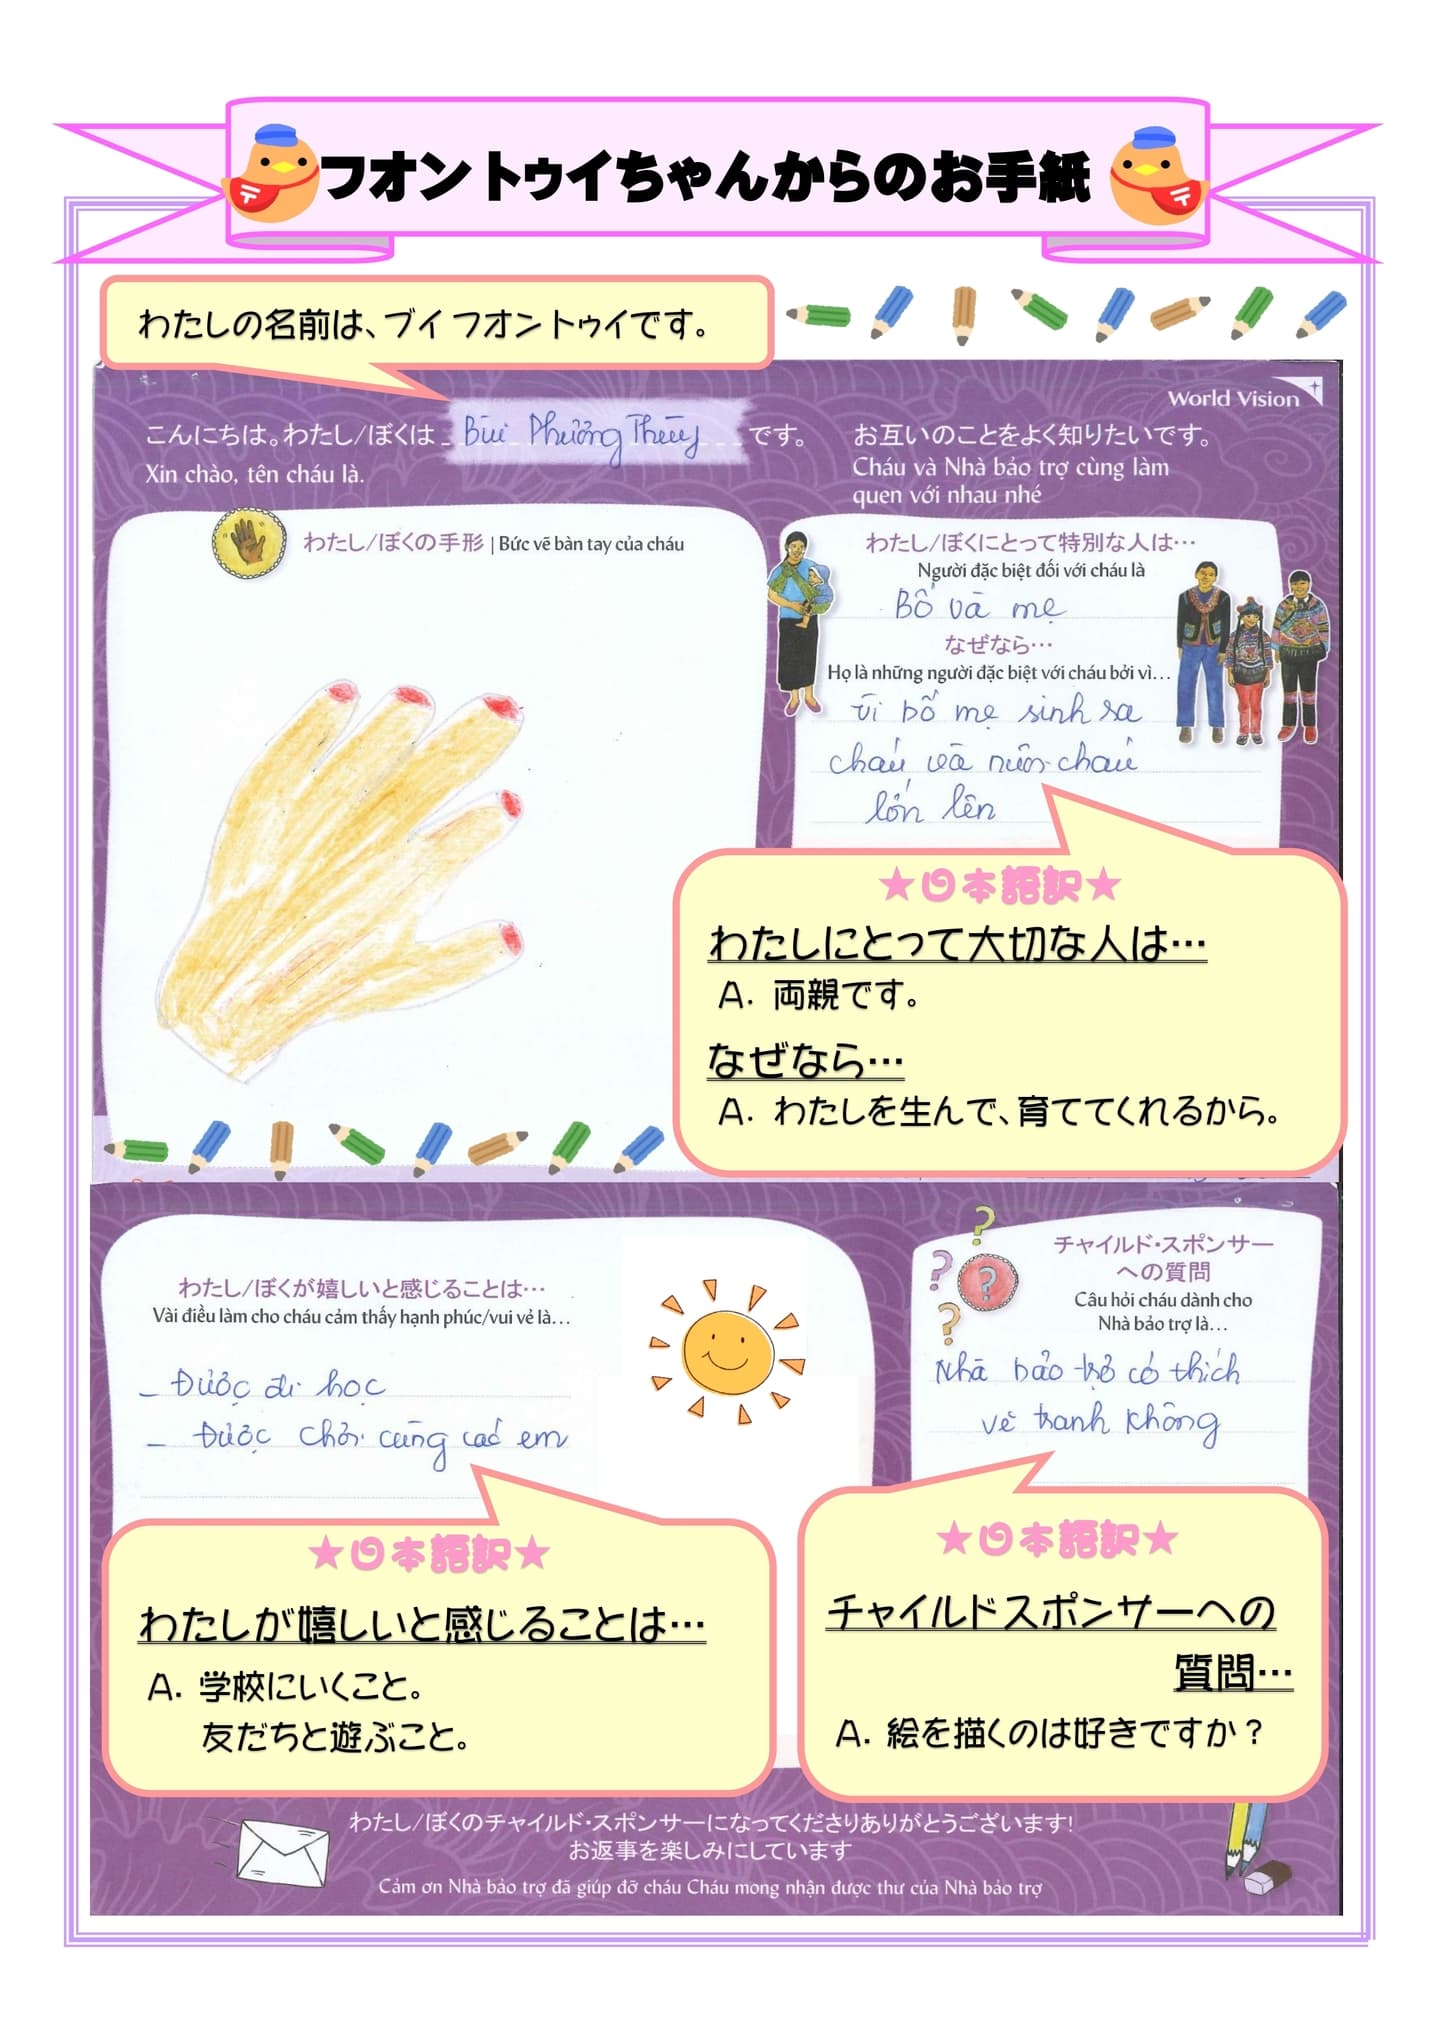 フオン トゥイちゃんからのお手紙
わたしの名前は、ブイ フオン トゥイです。
World Vision
こんにちは。わたし/ぼくは Bùi Phương Thùy です。
Xin chào, tên cháu là.
お互いのことをよく知りたいです。
Cháu và Nhà bảo trợ cùng làm
quen với nhau nhé
わたし/ぼくの手形 | Bức vẽ bàn tay của cháu
わたし/ぼくにとって特別な人は…
Người đặc biệt đối với cháu là
Bố và mẹ
なぜなら…
Họ là những người đặc biệt với cháu bởi vì…
Vì bố mẹ sinh ra
cháu và nuôi cháu
lớn lên
★日本語訳★
わたしにとって大切な人は…
A. 両親です。
なぜなら…
A. わたしを生んで、育ててくれるから。
わたし/ぼくが嬉しいと感じることは…
Vài điều làm cho cháu cảm thấy hạnh phúc/vui vẻ là…
– Được đi học
– Được chơi cùng các em
★日本語訳★
わたしが嬉しいと感じることは…
A. 学校にいくこと。
友だちと遊ぶこと。
チャイルド・スポンサー
への質問
Câu hỏi cháu dành cho
Nhà bảo trợ là…
Nhà bảo trợ có thích
vẽ tranh không
★日本語訳★
チャイルドスポンサーへの
質問…
A. 絵を描くのは好きですか？
わたし/ぼくのチャイルド・スポンサーになってくださりありがとうございます!
お返事を楽しみにしています
Cảm ơn Nhà bảo trợ đã giúp đỡ cháu Cháu mong nhận được thư của Nhà bảo trợ